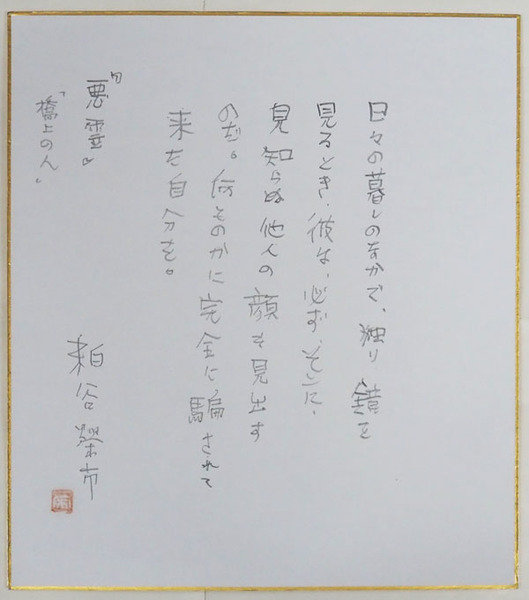 日々の暮しのなかで、独り 鏡を
見るとき、彼は、必ず、そこに、
見知らぬ他人の顔を見出す
のだ。何ものかに完全に騙されて
来た自分を。
『悪霊』
「橋上の人」
粕谷栄市